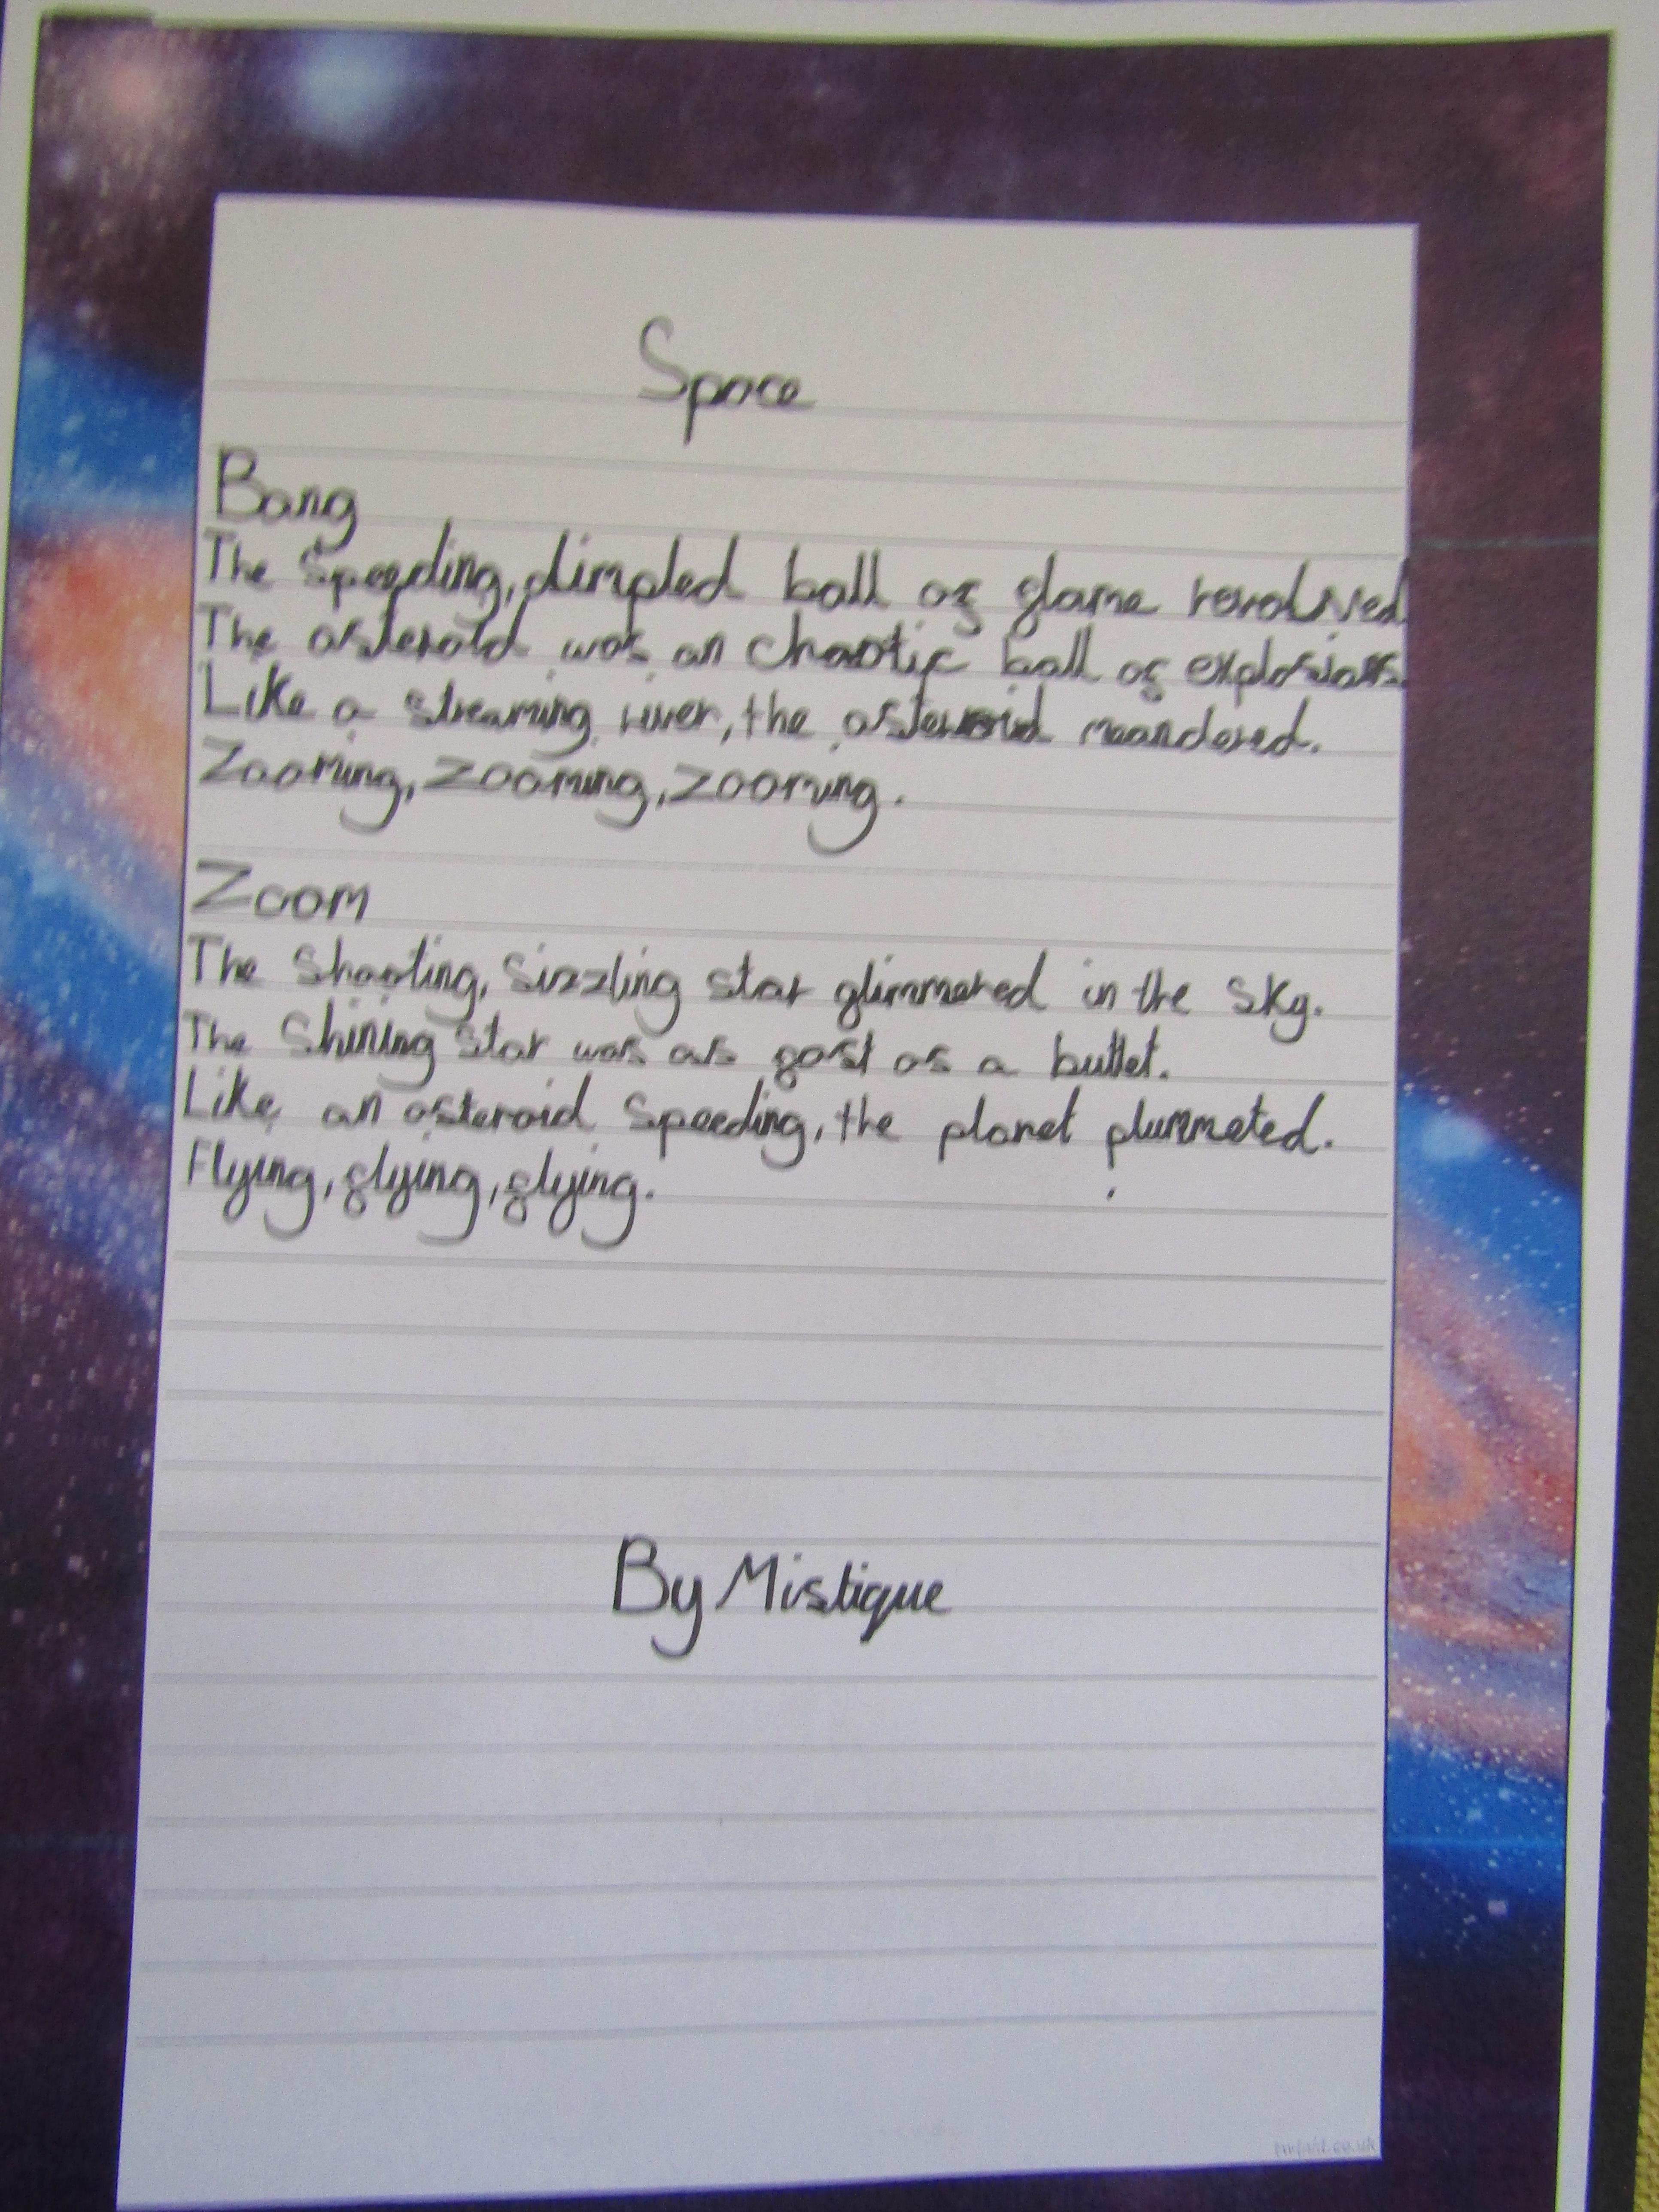 Space
Bang
The Speeding, dimpled ball of flame revolved
The asteroid was an chaotic ball of explosions.
Like a streaming river, the asteroid meandered.
Zooming, zooming, zooming.
Zoom
The Shooting, Sizzling star glimmered in the sky.
The Shining Star was as fast as a bullet.
Like an asteroid speeding, the planet plummeted.
Flying, flying, flying.
By Mistique